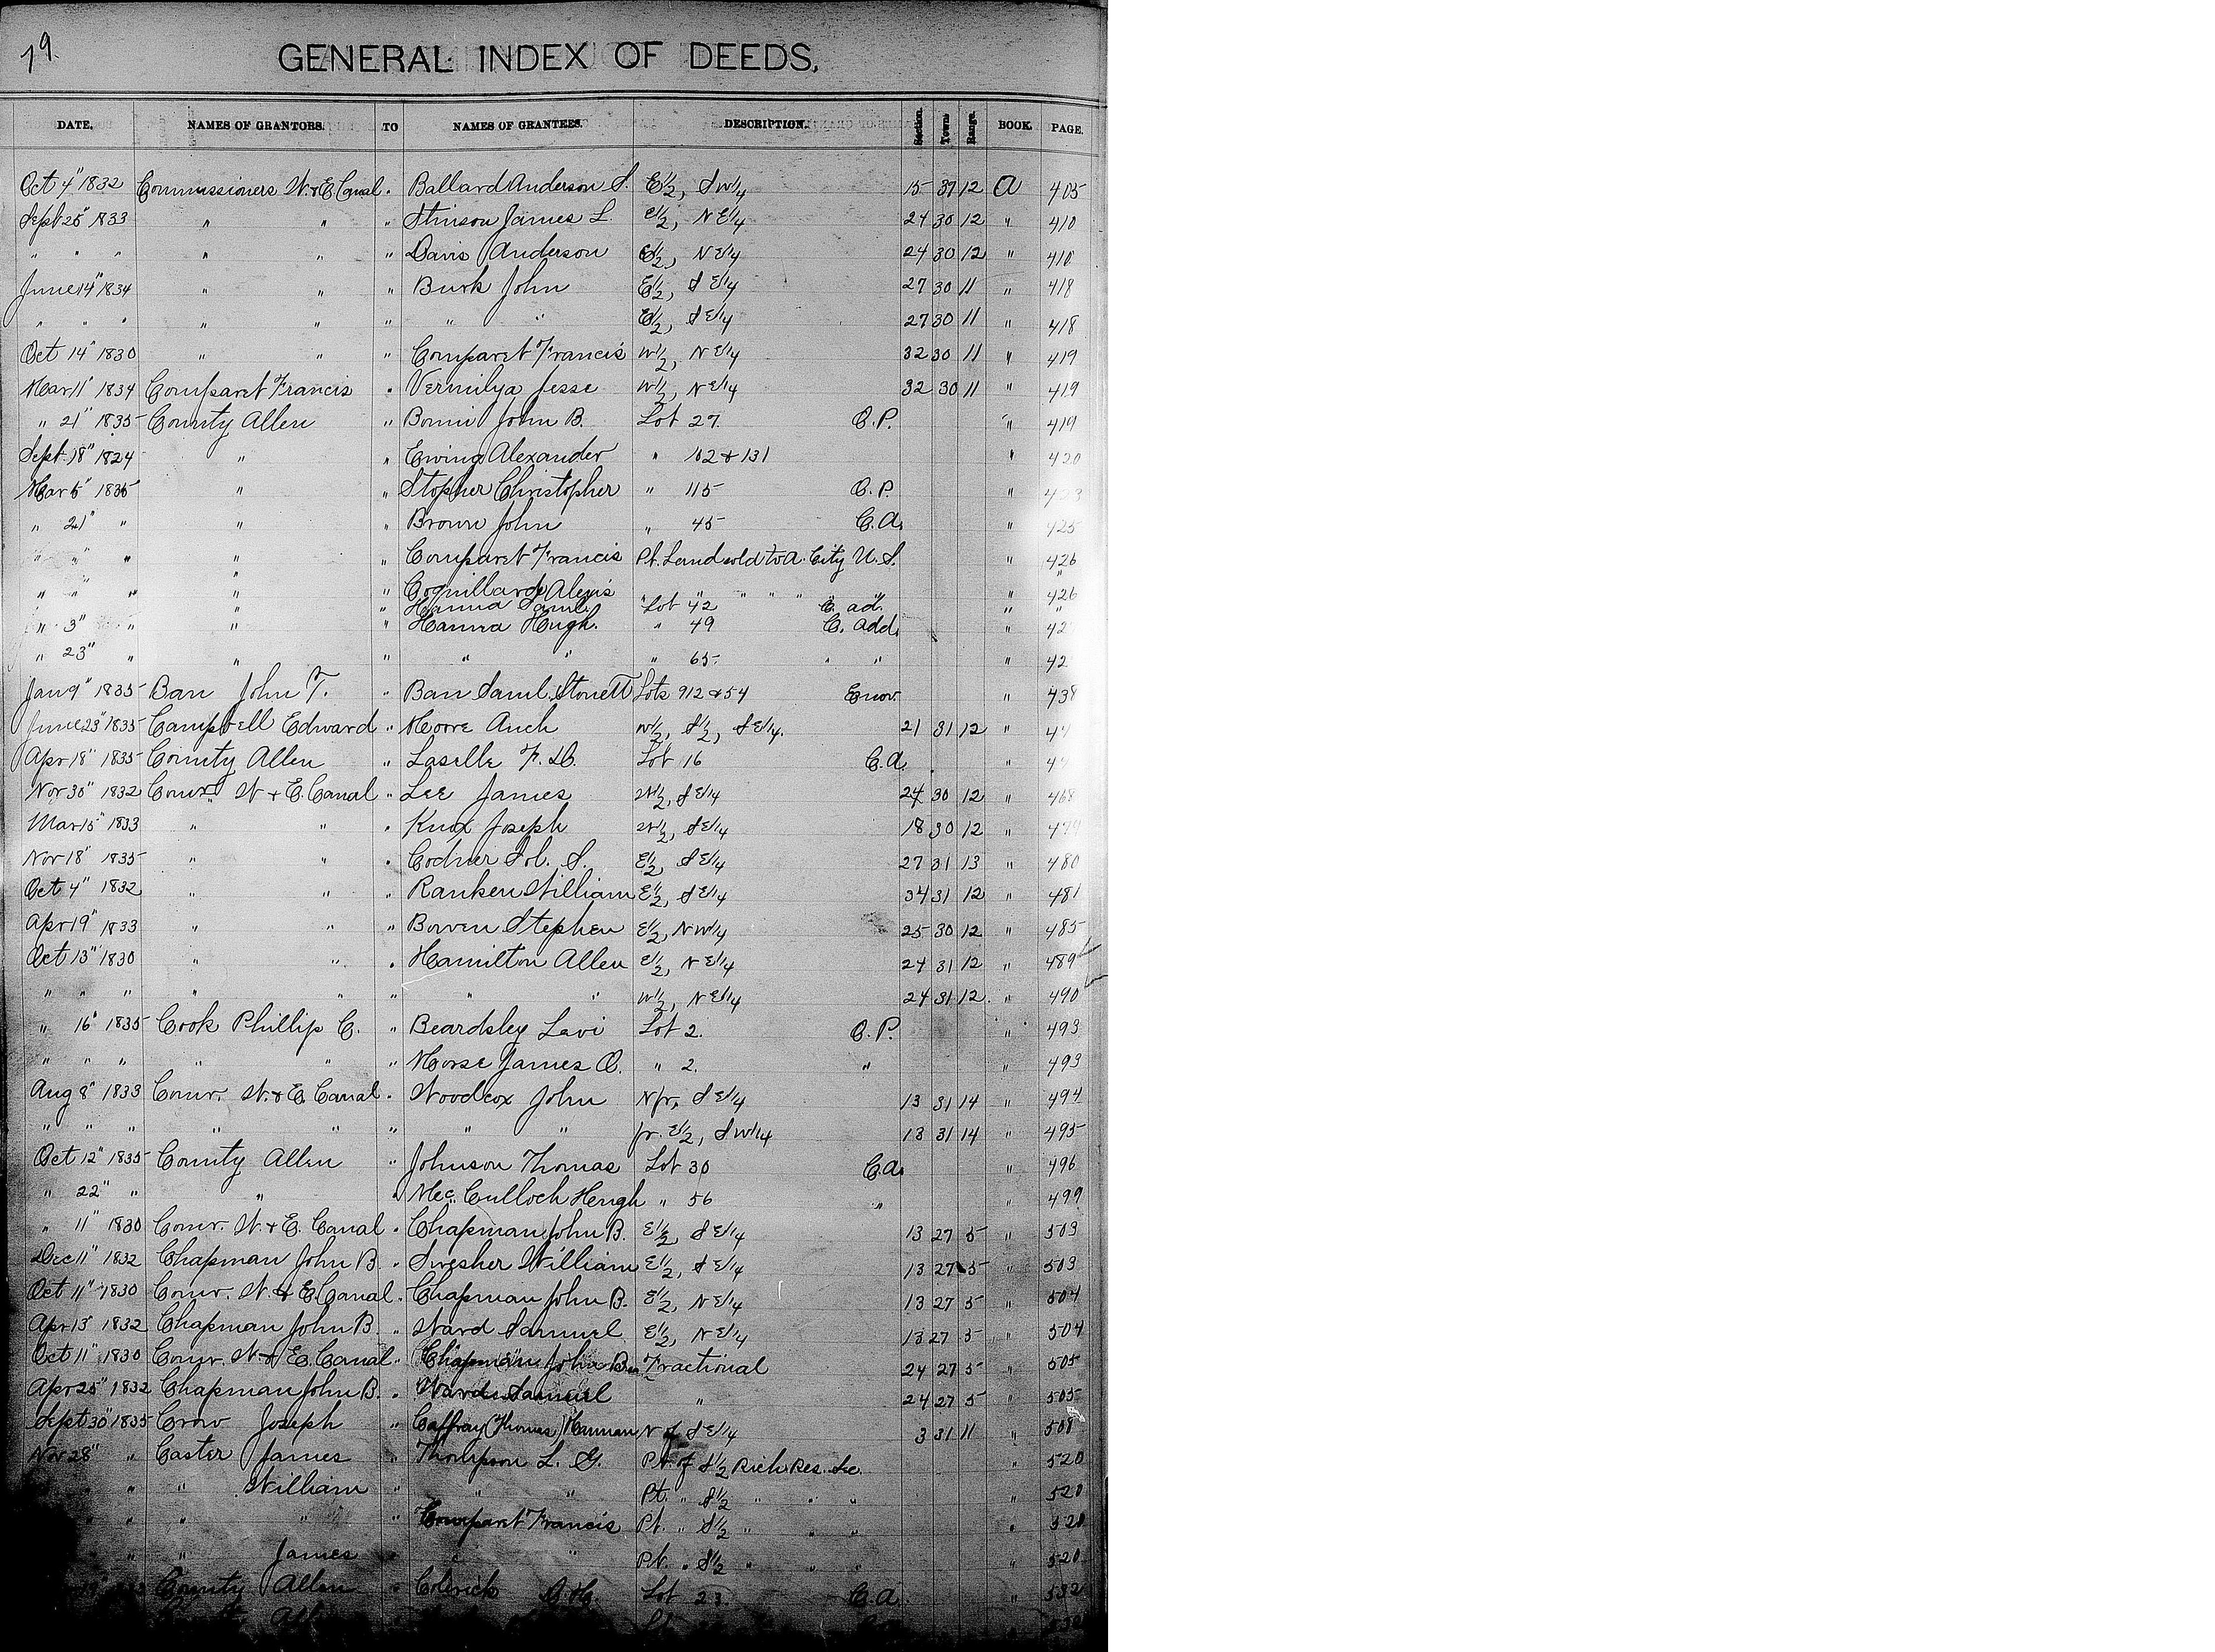 79.
GENERAL INDEX OF DEEDS.
DATE. NAMES OF GRANTORS. TO NAMES OF GRANTEES. DESCRIPTION. Section. Town. Range. BOOK. PAGE.
Oct 4" 1832 Commissioners W. & E. Canal " Ballard Anderson S. E 1/2, S W 1/4 15 37 12 A 405
Sept 25" 1833 " " " Stinson James L. E 1/2, N E 1/4 24 30 12 " 410
" " " " " " Davis Anderson E 1/2, N E 1/4 24 30 12 " 410
June 14" 1834 " " " Burk John E 1/2, S E 1/4 27 30 11 " 418
" " " " " " " " E 1/2, S E 1/4 27 30 11 " 418
Oct 14" 1830 " " " Comparet Francis W 1/2, N E 1/4 32 30 11 " 419
Mar 11" 1834 Comparet Francis " Vermilya Jesse W 1/2, N E 1/4 32 30 11 " 419
" 21" 1835 County Allen " John B. Lot 27. O.P. " 419
Sept 18" 1824 " " Ewing Alexander " 102 & 131 " 420
Mar 5" 1835 " " Stopher Christopher " 115 O.P. " 423
" 21" " " " Brown John " 45 C.A. " 425
" " " " " Comparet Francis Pt. Land sold to A. City U.S. " 426
" " " " " Coquillard Alexis " " " " " " " 426
" " Hanna Saml. Lot 42 C. ad. " "
" 3" " " " Hanna Hugh. " 49 C. Add. " 42
" 23" " " " " " " 65. " " " 42
Jan 9" 1835 Barr John T. " Barr Saml. Lots 912 & 54 " 438
June 23" 1835 Campbell Edward " Moore Auch W 1/2, S 1/2, S E 1/4. 21 31 12 " 44
Apr 18" 1835 County Allen " Laselle F. D. Lot 16 C.A. " 44
Nov 30" 1832 Comr W. & E. Canal " Lee James W 1/2, S E 1/4 24 30 12 " 468
Mar 15" 1833 " " " Knox Joseph W 1/2, S E 1/4 18 30 12 " 479
Nov 18" 1835 " " " Codner Sol. S. E 1/2, S E 1/4 27 31 13 " 480
Oct 4" 1832 " " " Ranken William E 1/2, S E 1/4 34 31 12 " 481
Apr 19" 1833 " " " Bowen Stephen E 1/2, N W 1/4 25 30 12 " 485
Oct 13" 1830 " " " Hamilton Allen E 1/2, N E 1/4 24 31 12 " 489
" " " " " " " " W 1/2, N E 1/4 24 31 12 " 490
" 16" 1835 Cook Phillip C. " Beardsley Lavi Lot 2. O.P. " 493
" " " " " " Morse James O. " 2. " " 493
Aug 8" 1833 Comr. W. & E. Canal " Woodcox John N fr, S E 1/4 13 31 14 " 494
" " " " " " " " fr. E 1/2, S W 1/4 13 31 14 " 495
Oct 12" 1835 County Allen " Johnson Thomas Lot 30 C.A. " 496
" 22" " " " Mc Culloch Hugh " 56 " " 499
" 11" 1830 Comr. W. & E. Canal " Chapman John B. E 1/2, S E 1/4 13 27 5 " 503
Dec 11" 1832 Chapman John B. " Swesher William E 1/2, S E 1/4 13 27 5 " 503
Oct 11" 1830 Comr. W. & E. Canal " Chapman John B. E 1/2, N E 1/4 13 27 5 " 504
Apr 13" 1832 Chapman John B. " Ward Samuel E 1/2, N E 1/4 13 27 5 " 504
Oct 11" 1830 Comr. W. & E. Canal " Chapman John B. Fractional 24 27 5 " 505
Apr 25" 1832 Chapman John B. " Ward Samuel " 24 27 5 " 505
Sept 30" 1835 Crow Joseph " Caffray (Thomas) Hannan N of S E 1/4 3 31 11 " 508
Nov 28" " Caster James " Thompson L. G. Pt. of S 1/2 Rich. Res. " 520
" " William " " " Pt. " S 1/2 " " " " 520
" " " " Comparet Francis Pt. " S 1/2 " " " " 520
" " James " " " Pt. " S 1/2 " " " " 520
County Allen " Colerick D. H. Lot 23. C.A. 532